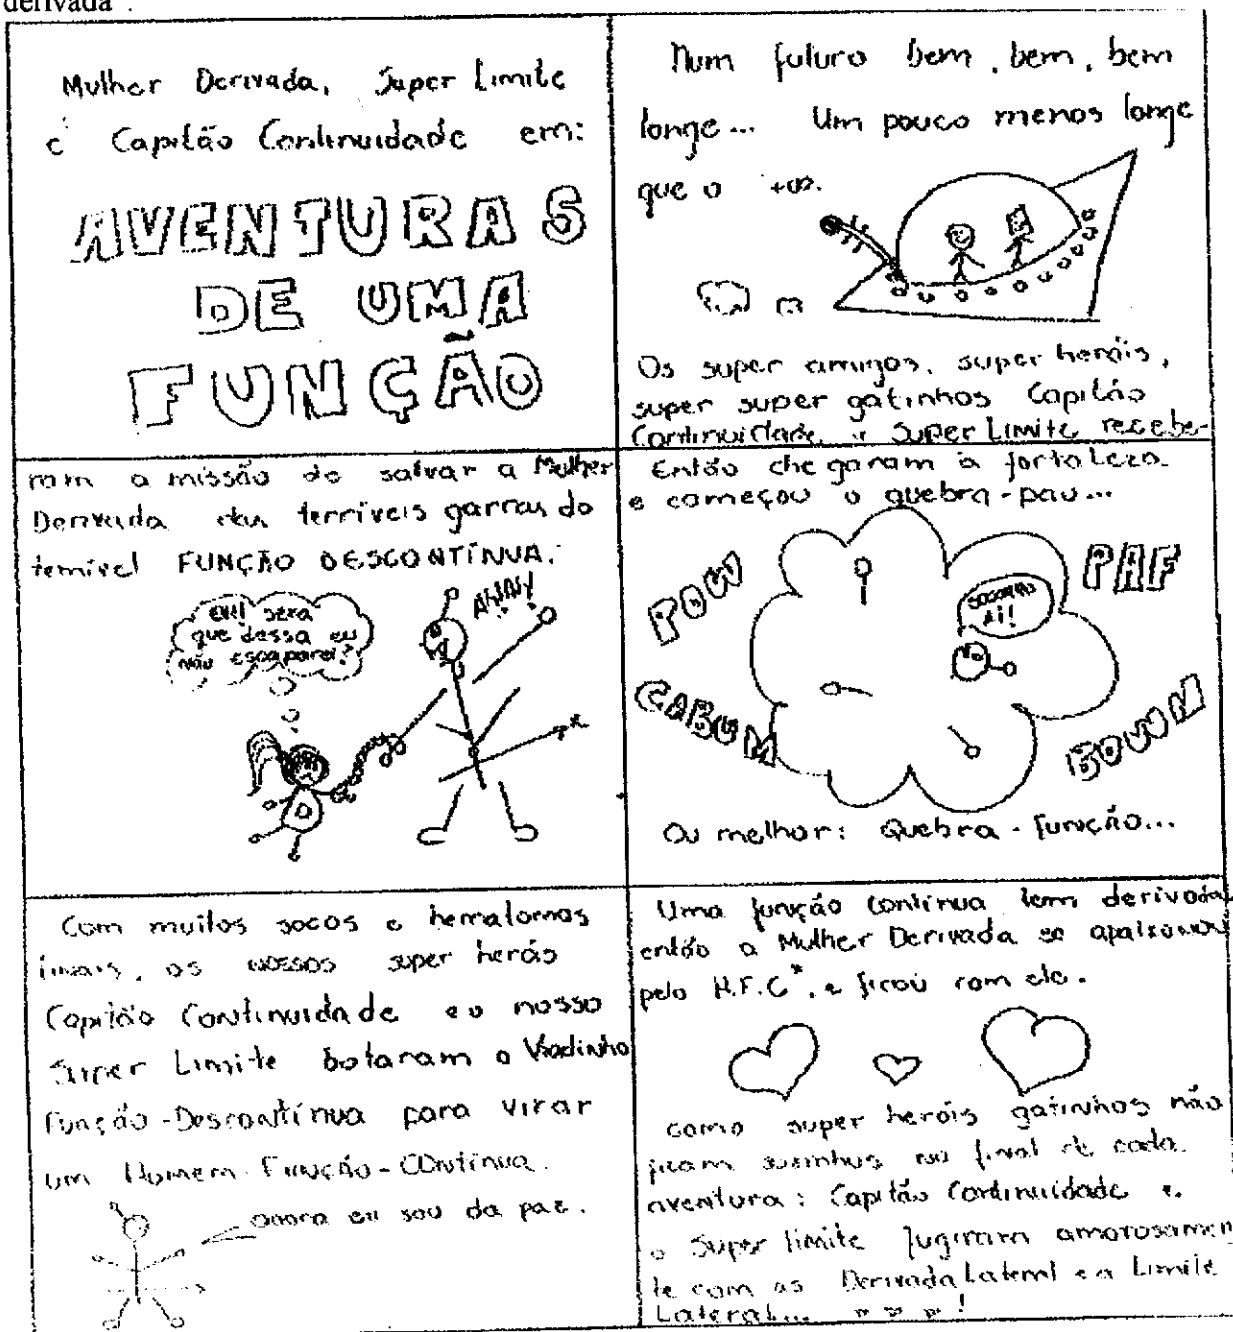 derivada".
Mulher Derivada, Super Limite
e Capitão Continuidade em:
AVENTURAS
DE UMA
FUNÇÃO
Num futuro bem, bem, bem
longe... Um pouco menos longe
que o +∞.
Os super amigos, super heróis,
super super gatinhos Capitão
Continuidade e Super Limite recebe-
ram a missão de salvar a Mulher
Derivada das terríveis garras do
temível FUNÇÃO DESCONTÍNUA.
será
que dessa eu
não escaparei?
Então chegaram à fortaleza
e começou o quebra-pau...
POW
PAF
SOCORRO
AI!
CABUM
Ou melhor: Quebra-função...
Com muitos socos e hematomas
os nossos super heróis
Capitão Continuidade e o nosso
Super Limite botaram o
Função-Descontínua para virar
um Homem-Função-COntínua.
Agora eu sou da paz.
Uma função contínua tem derivada,
então a Mulher Derivada se apaixonou
pelo H.F.C*, e ficou com ele.
como super heróis gatinhos não
ficam sozinhos no final de cada
aventura: Capitão Continuidade e
o Super limite fugiram amorosamen
te com as Derivada Lateral e a Limite
Lateral... !